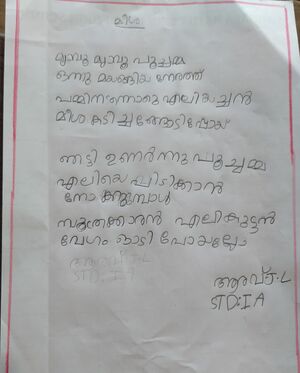 മീശ
മ്യാവൂ മ്യാവൂ പൂച്ചമ്മ
ഒന്നു മയങ്ങിയ നേരത്ത്
പമ്മിനടന്നൊരു എലിയച്ചൻ
മീശ കടിച്ചങ്ങോടിപ്പോയ്
ഞെട്ടി ഉണർന്നു പൂച്ചമ്മ
എലിയെ പിടിക്കാൻ
നോക്കുമ്പോൾ
സൂത്രക്കാരൻ എലികുട്ടൻ
വേഗം ഓടി പോയല്ലോ
ആരവ് J.L
STD: I A
ആരവ് J.L
STD: I A